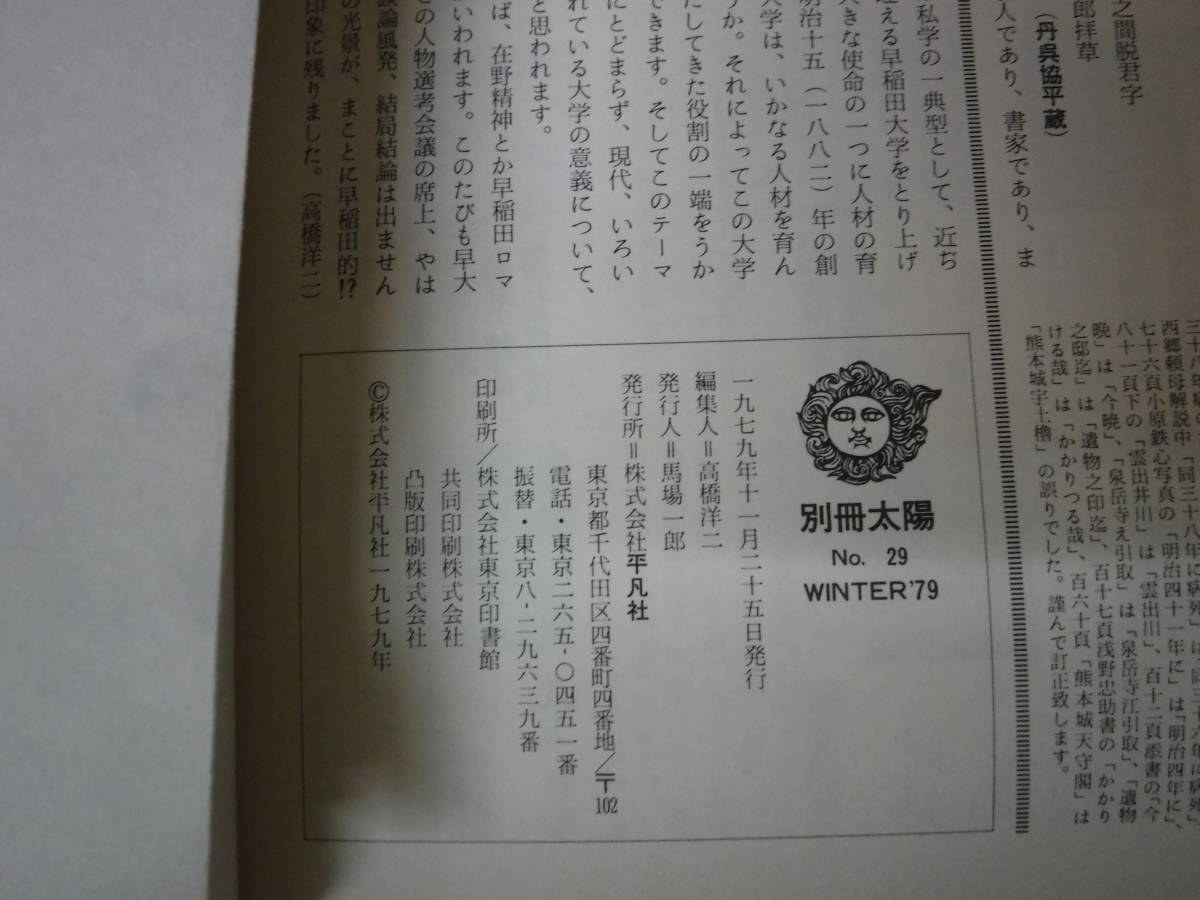 之間脱君字
郎拝草
（丹呉協平蔵）
人であり、書家であり、ま
私学の一典型として、近ぢ
迎える早稲田大学をとり上げ
大きな使命の一つに人材の育
明治十五（一八八二）年の創
大学は、いかなる人材を育ん
うか。それによってこの大学
たしてきた役割の一端をうか
できます。そしてこのテーマ
にとどまらず、現代、いろい
れている大学の意義について、
と思われます。
ば、在野精神とか早稲田ロマ
いわれます。このたびも早大
の人物選考会議の席上、やは
談論風発、結局結論は出ません
の光景が、まことに早稲田的!?
印象に残りました。（高橋洋二）
西郷頼母解説中「同三十八年に病死」は「同三十六年に病死」、
七十六頁小原鉄心写真の「明治四十一年に」は「明治四年に」、
八十一頁下の「雲出井川」は「雲出川」、百十二頁添書の「今
暁」は「今暁」、「泉岳寺え引取」は「泉岳寺江引取」、「遺物
之邸迄」は「遺物之印迄」、百十七頁浅野忠助書の「かかり
ける哉」は「かかりつる哉」、百六十頁「熊本城天守閣」は
「熊本城宇土櫓」の誤りでした。謹んで訂正致します。
別冊太陽
No. 29
WINTER'79
一九七九年十一月二十五日発行
編集人＝高橋洋二
発行人＝馬場一郎
発行所＝株式会社平凡社
東京都千代田区四番町四番地／〒102
電話・東京二六五-〇四五一番
振替・東京八-二九六三九番
印刷所／株式会社東京印書館
共同印刷株式会社
凸版印刷株式会社
©株式会社平凡社一九七九年